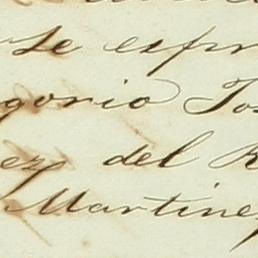 se espr
gorio Jos
ez del R
Martinez